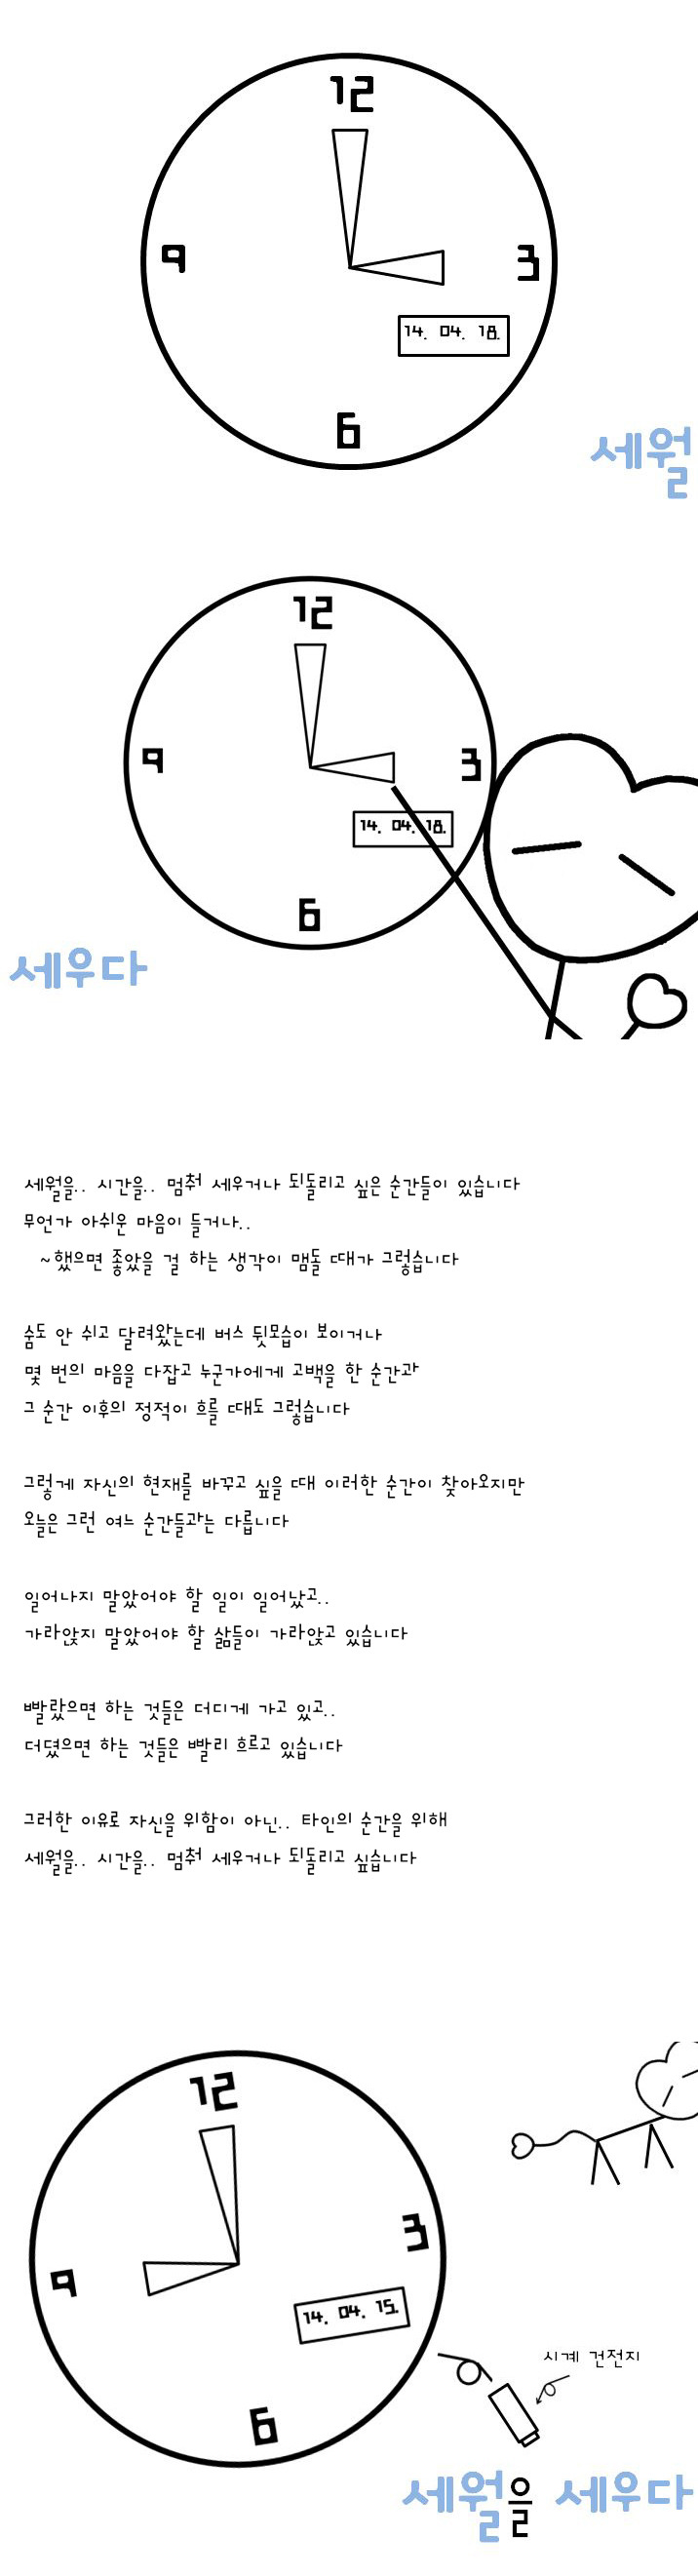 12
9
3
14. 04. 18.
6
세월
12
9
3
14. 04. 18.
6
세우다
세월을.. 시간을.. 멈춰 세우거나 되돌리고 싶은 순간들이 있습니다
무언가 아쉬운 마음이 들거나..
~했으면 좋았을 걸 하는 생각이 맴돌 때가 그렇습니다
숨도 안 쉬고 달려왔는데 버스 뒷모습이 보이거나
몇 번의 마음을 다잡고 누군가에게 고백을 한 순간과
그 순간 이후의 정적이 흐를 때도 그렇습니다
그렇게 자신의 현재를 바꾸고 싶을 때 이러한 순간이 찾아오지만
오늘은 그런 여느 순간들과는 다릅니다
일어나지 말았어야 할 일이 일어났고..
가라앉지 말았어야 할 삶들이 가라앉고 있습니다
빨랐으면 하는 것들은 더디게 가고 있고..
더뎠으면 하는 것들은 빨리 흐르고 있습니다
그러한 이유로 자신을 위함이 아닌.. 타인의 순간을 위해
세월을.. 시간을.. 멈춰 세우거나 되돌리고 싶습니다
12
3
9
14. 04. 15.
시계 건전지
6
세월을 세우다